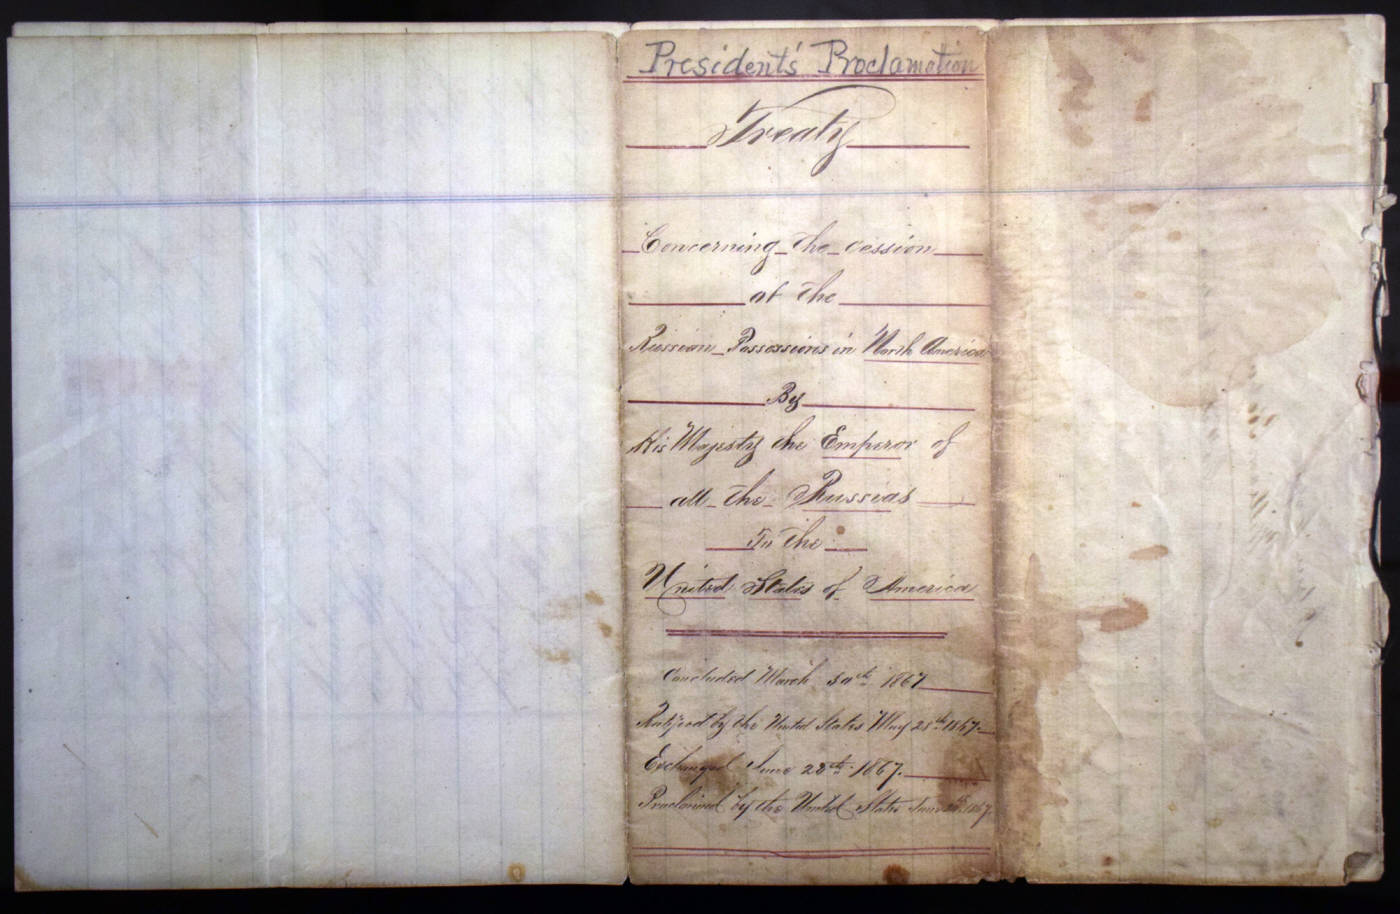 President's Proclamation
Treaty
Concerning the cession
of the
Russian Possessions in North America
By
His Majesty the Emperor of
all the Russias
To the
United States of America
Concluded March 30th 1867
Ratified by the United States May 28th 1867.
Exchanged June 20th 1867.
Proclaimed by the United States June 20th 1867